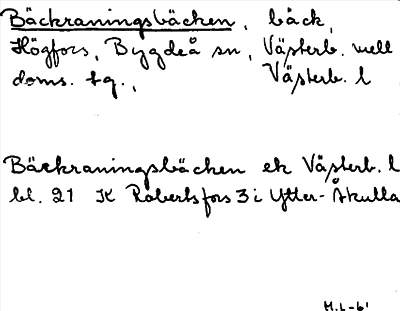 Bäckraningsbäcken, bäck,
Högfors, Bygdeå sn, Västerb. mell
doms. tg., Västerb. l
Bäckraningsbäcken ek Västerb. l
bl. 21 K Robertsfors 3 i Ytter-Åkulla
M.L-61